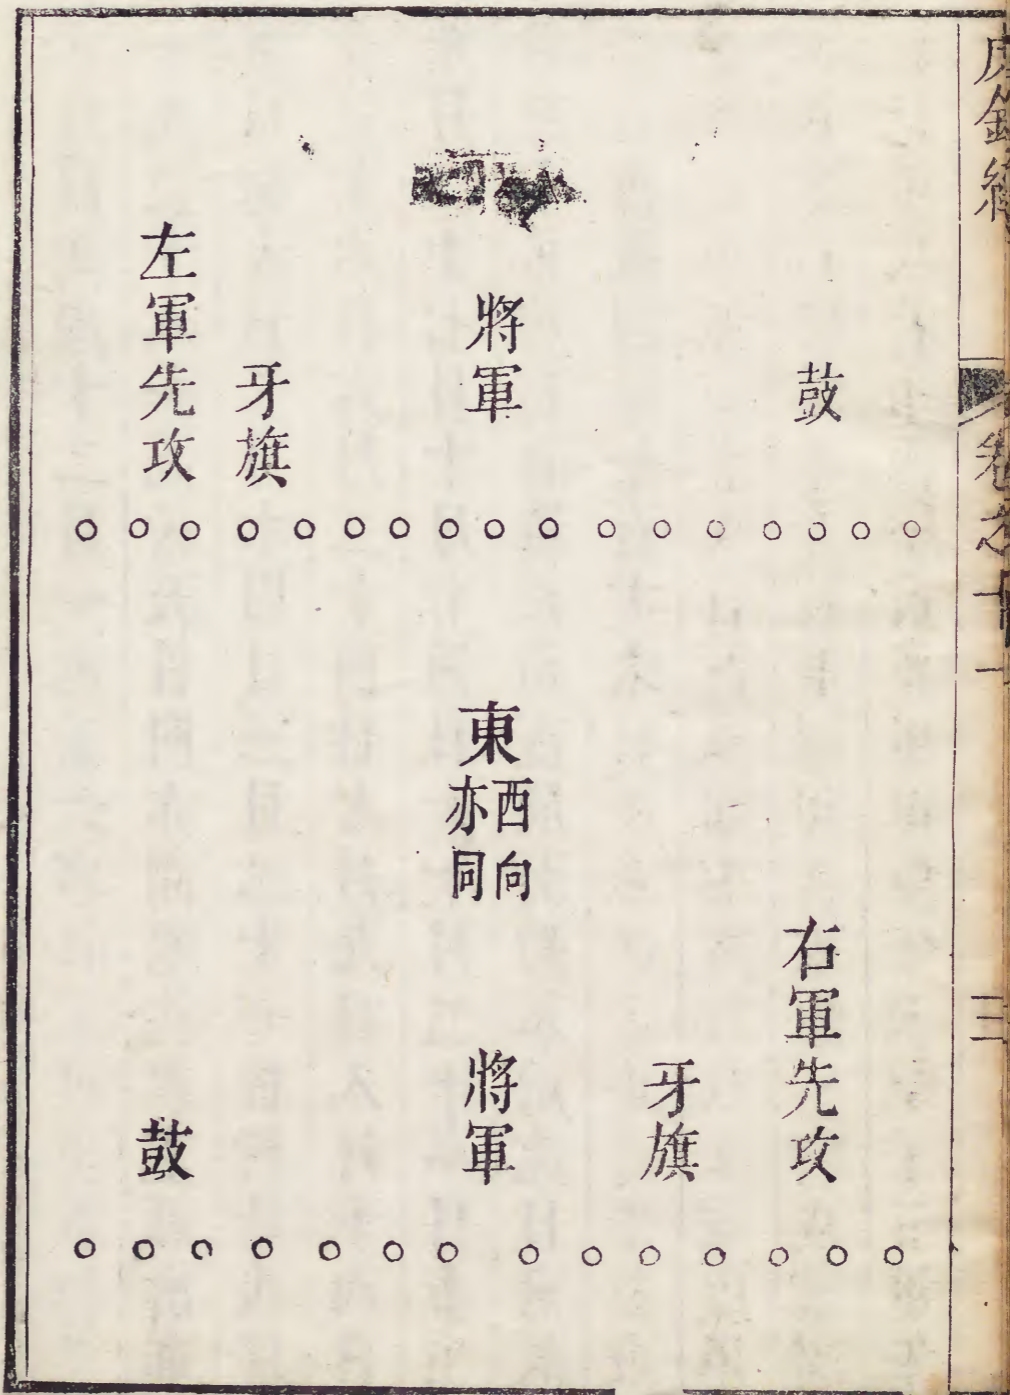 虎鈐經
卷之十一
三
鼓
將軍
牙旗
左軍先攻
東
西向
亦同
右軍先攻
牙旗
將軍
鼓